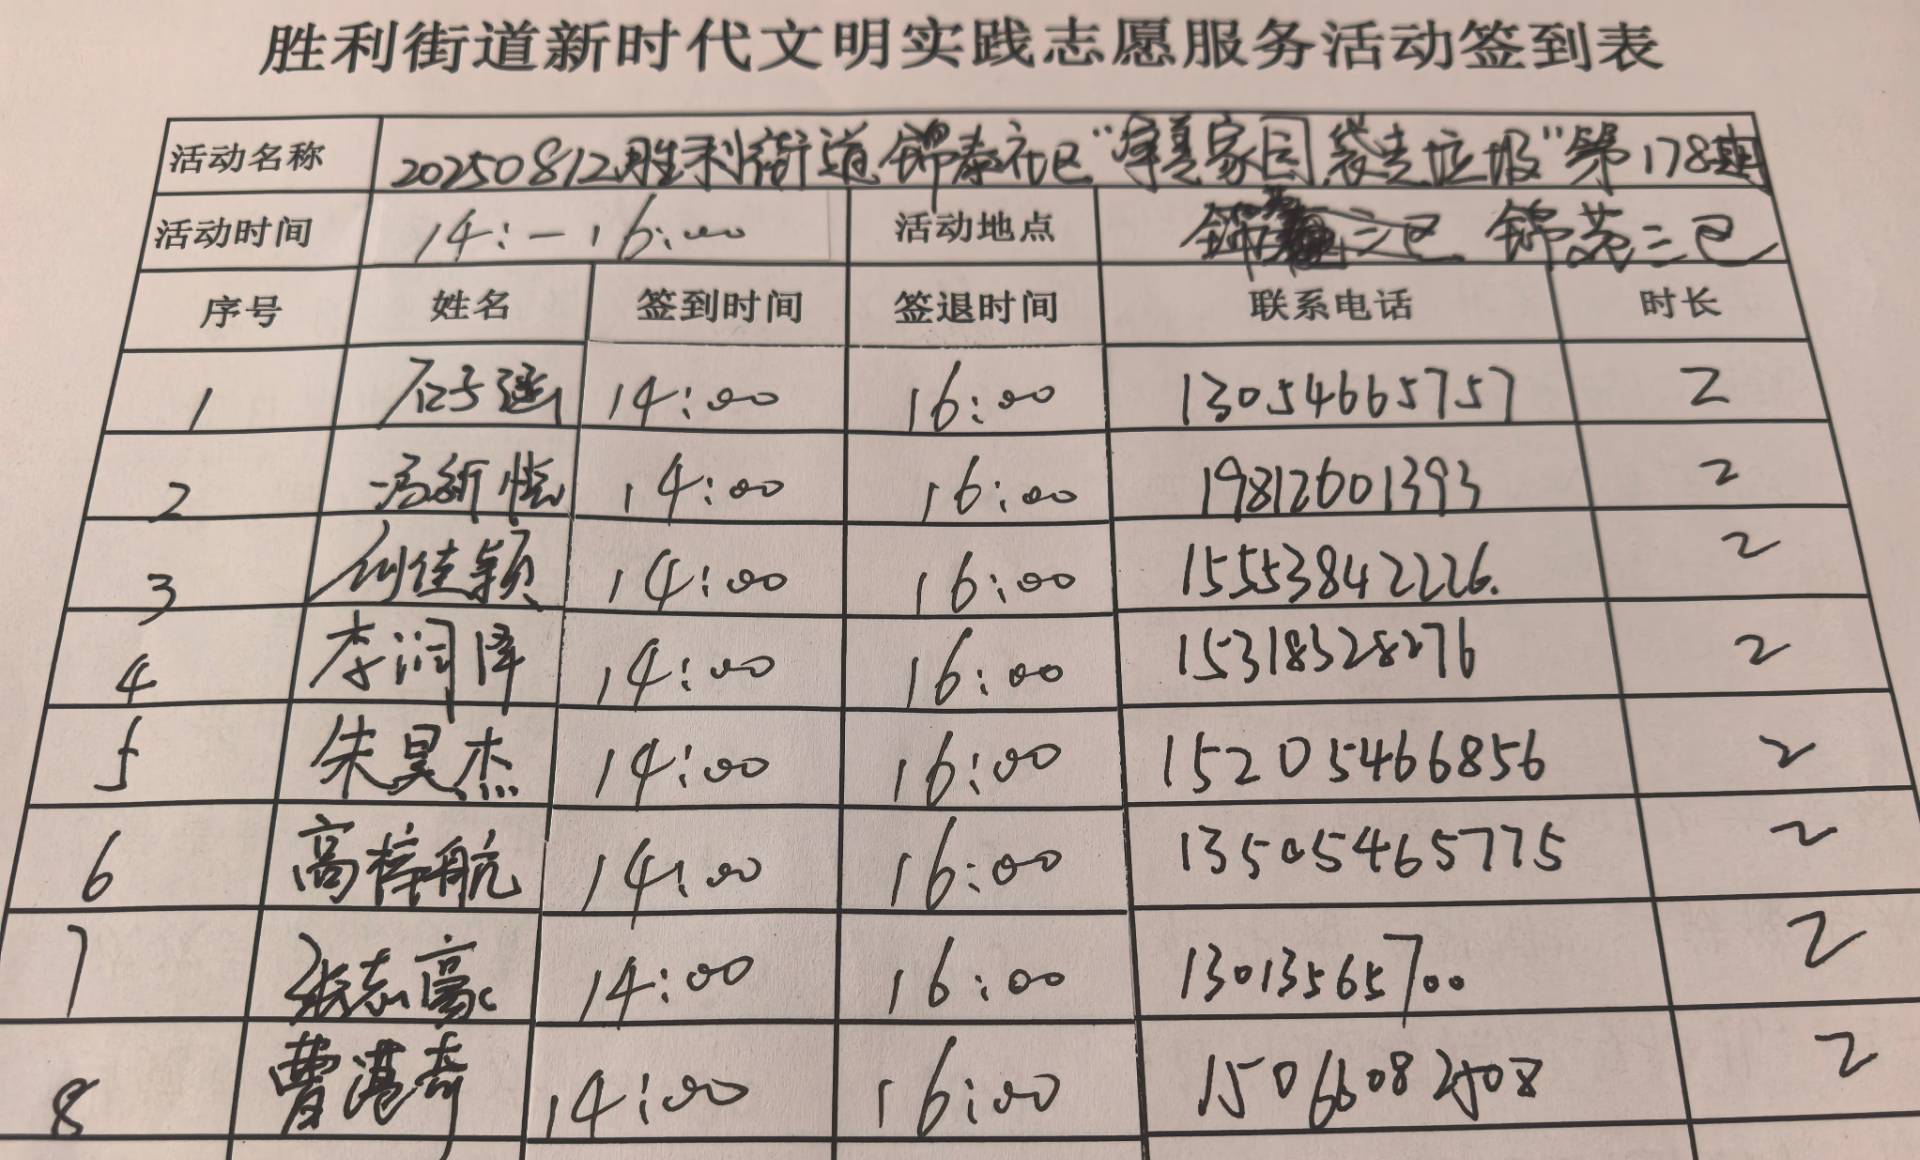 胜利街道新时代文明实践志愿服务活动签到表
活动名称 20250812胜利街道锦泰社区“净美家园袋走垃圾”第178期
活动时间 14:-16:00 活动地点 锦苑三区
序号 姓名 签到时间 签退时间 联系电话 时长
1 石子遥 14:00 16:00 13054665757 2
2 冯新悦 14:00 16:00 19812601393 2
3 何佳颖 14:00 16:00 15553842226. 2
4 李润泽 14:00 16:00 15318328276 2
5 朱昊杰 14:00 16:00 15205466856 2
6 高梓航 14:00 16:00 13505465775 2
7 张志豪 14:00 16:00 13013565700 2
8 曹湛奇 14:00 16:00 15066082508 2